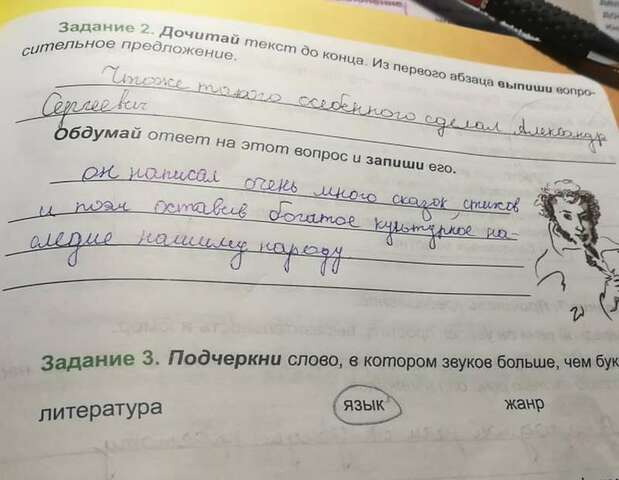 Задание 2. Дочитай текст до конца. Из первого абзаца выпиши вопро-
сительное предложение.
Чтоже такого особенного сделал Александр
Сергеевич
Обдумай ответ на этот вопрос и запиши его.
он написал очень много сказок, стихов
и поэм оставив богатое культурное на-
следие нашиму народу
Задание 3. Подчеркни слово, в котором звуков больше, чем бук
литература язык жанр